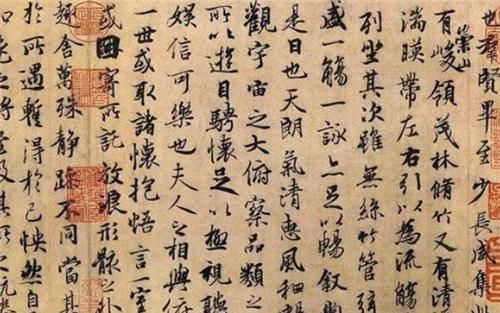 也羣賢畢至少長咸集此
有崇山峻領茂林脩竹又有清
湍暎帶左右引以為流觴
列坐其次雖無絲竹管弦
盛一觴一詠亦足以暢叙幽
是日也天朗氣清惠風和暢
觀宇宙之大俯察品類之
所以遊目騁懷足以極視聽
娛信可樂也夫人之相與俯
一世或取諸懷抱悟言一室
或因寄所託放浪形骸之外
趣舍萬殊靜躁不同當其
於所遇暫得於己怏然自
老之將至及其所之既惓